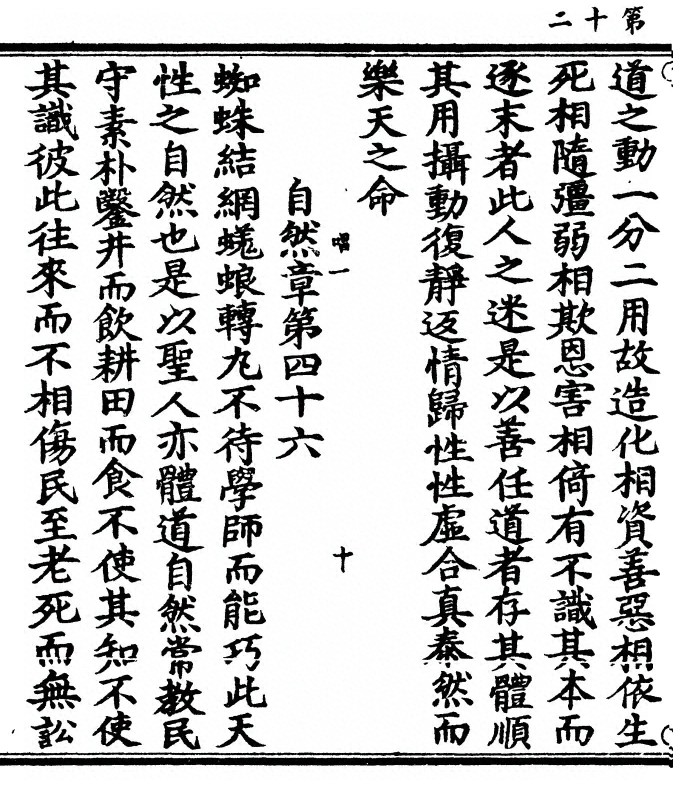 第十二
道之動一分二用故造化相資善惡相依生
死相隨彊弱相欺恩害相倚有不識其本而
逐末者此人之迷是以善任道者存其體順
其用攝動復靜返情歸性性虛合真泰然而
樂天之命
唱一
十
自然章第四十六
蜘蛛結網蜣蜋轉丸不待學師而能巧此天
性之自然也是以聖人亦體道自然常教民
守素朴鑿井而飲耕田而食不使其知不使
其識彼此往來而不相傷民至老死而無訟